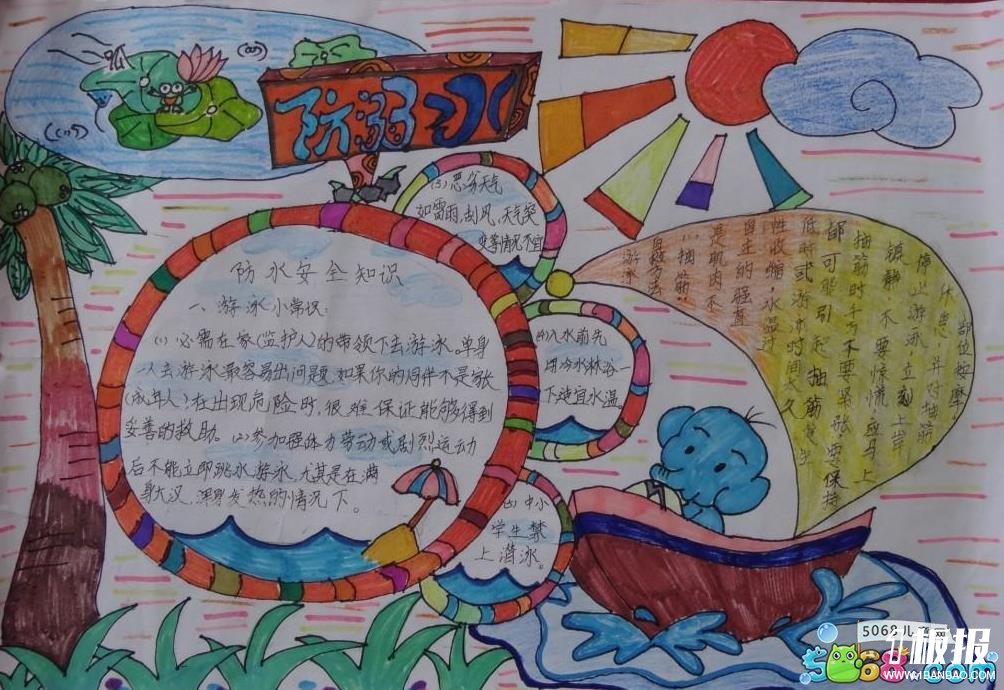 防溺水
防水安全知识
一、游泳小常识:
(1)必需在家(监护人)的带领下去游泳。单身
人去游泳最容易出问题,如果你的同伴不是家长
(成年人),在出现危险时,很难保证能够得到
妥善的救助。(2)参加强体力劳动或剧烈运动
后不能立即跳水游泳,尤其是在满
身大汉,浑身发热的情况下。
(3)恶劣天气
如雷雨,刮风,天气突
变等情况不宜
游泳
(4)入水前先
用冷水淋浴一
下适宜水温。
中小
学生禁
止游泳。
自救方法
(一)抽筋:
是肌肉不
自主的强直
性收缩,水温过
低时或游泳时间太久
都可能引起抽筋发生
抽筋时千万不要紧张,要保持
镇静,不要惊慌,应马上
停止游泳,立刻上岸
休息,并对抽筋
部位按摩
5068儿
板报
5068.com
WWW.1BANBAO.COM